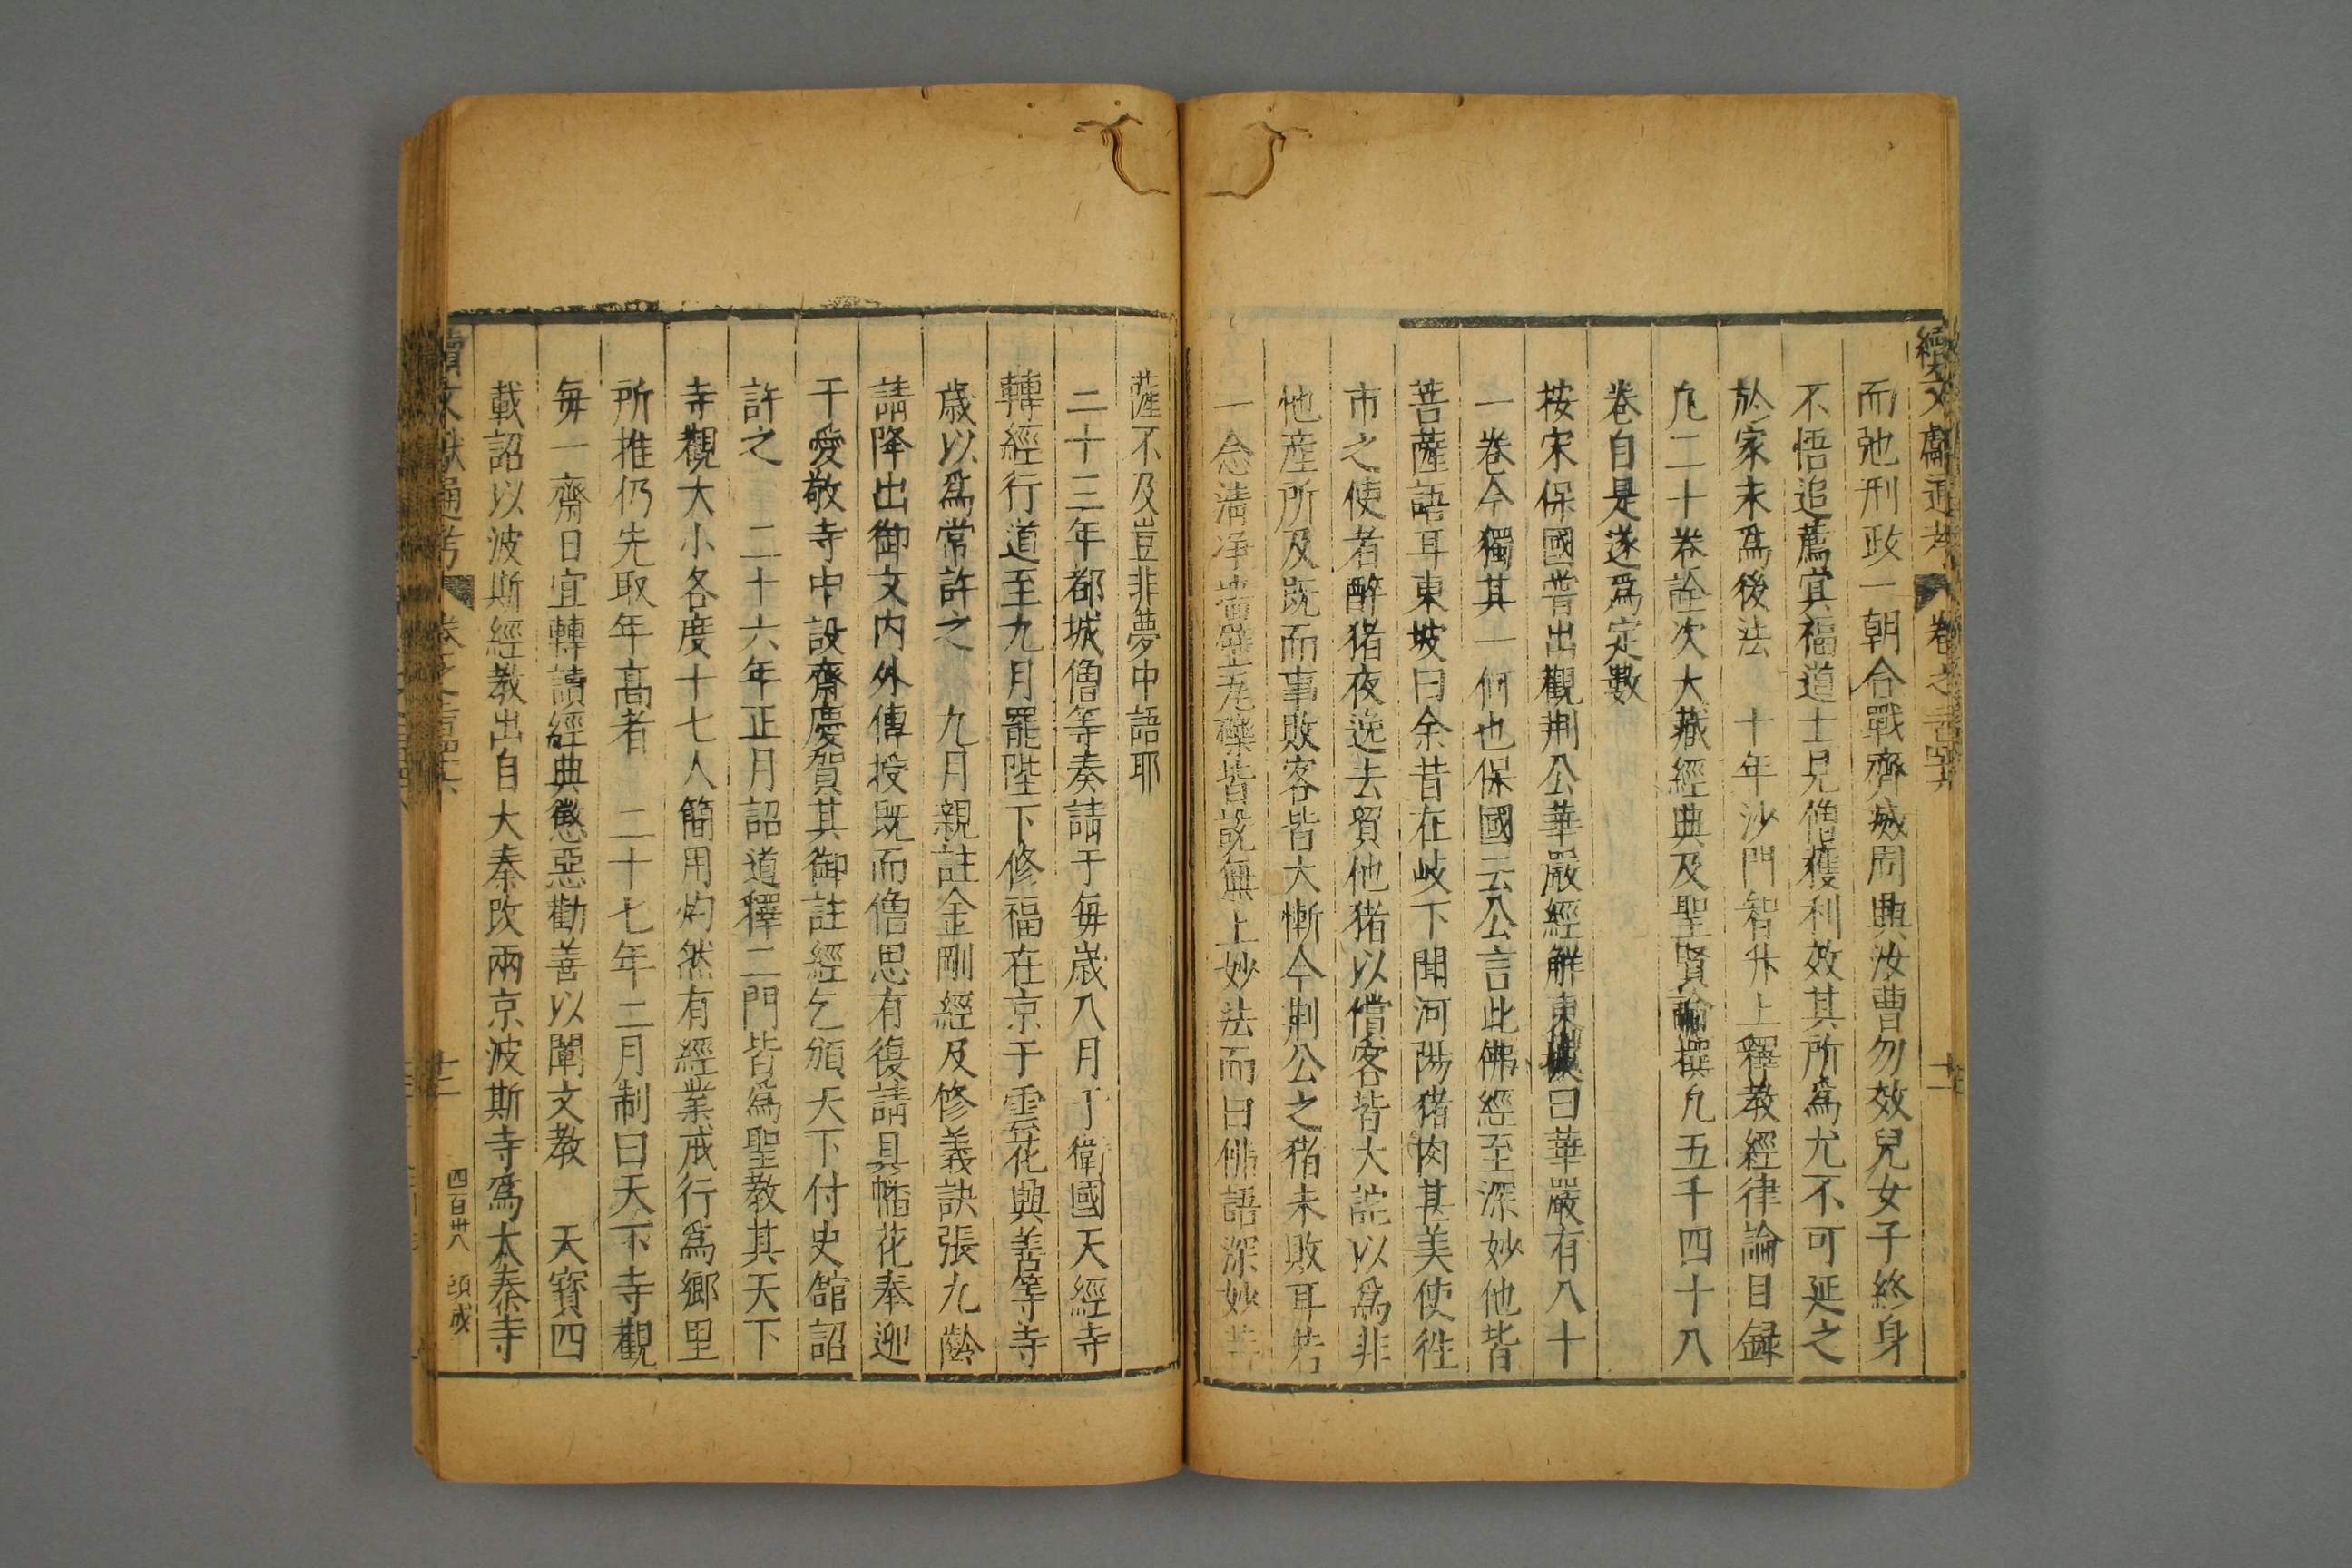 續文獻通考 卷之
而弛刑政一朝合戰齊滅周興汝曹勿效兒女子終身
不悟追薦冥福道士見僧獲利效其所爲尤不可延之
於家末爲後法 十年沙門智升上釋教經律論目録
凢二十卷詮次大藏經典及聖賢論撰凢五千四十八
卷自是遂爲定數
按宋保國普出觀荆公華嚴經解東坡曰華嚴有八十
一卷今獨其一何也保國云公言此佛經至深妙他皆
菩薩語耳東坡曰余昔在岐下聞河陽猪肉甚美使徃
市之使者醉猪夜逸去貿他猪以償客皆大詫以爲非
他産所及既而事敗客皆大慚今荆公之猪未敗耳若
一念清净墻壁瓦礫皆說無上妙法而曰佛語深妙菩
薩不及豈非夢中語耶
二十三年都城僧等奏請于毎歲八月于衛國天經寺
轉經行道至九月罷陛下修福在京于雲花興善等寺
歲以爲常許之 九月親註金剛經及修義訣張九齡
請降出御文内外傳授既而僧思有復請具幡花奉迎
于愛敬寺中設齋慶賀其御註經乞頒天下付史舘詔
許之 二十六年正月詔道釋二門皆爲聖教其天下
寺觀大小各度十七人簡用灼然有經業戒行爲鄉里
所推仍先取年高者 二十七年二月制曰天下寺觀
毎一齋日宜轉讀經典懲惡勸善以闡文教 天寳四
載詔以波斯經教出自大秦改兩京波斯寺爲太秦寺
續文獻通考 卷之
四百卅八